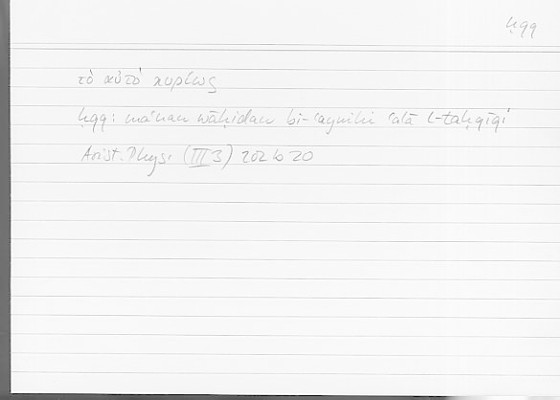 ḥqq
τὸ αὐτὸ κυρίως
ḥqq: maʿnan wāḥidan bi-ʿaynihi ʿalā l-taḥqīqi
Arist. Phys. (III 3) 202 b 20